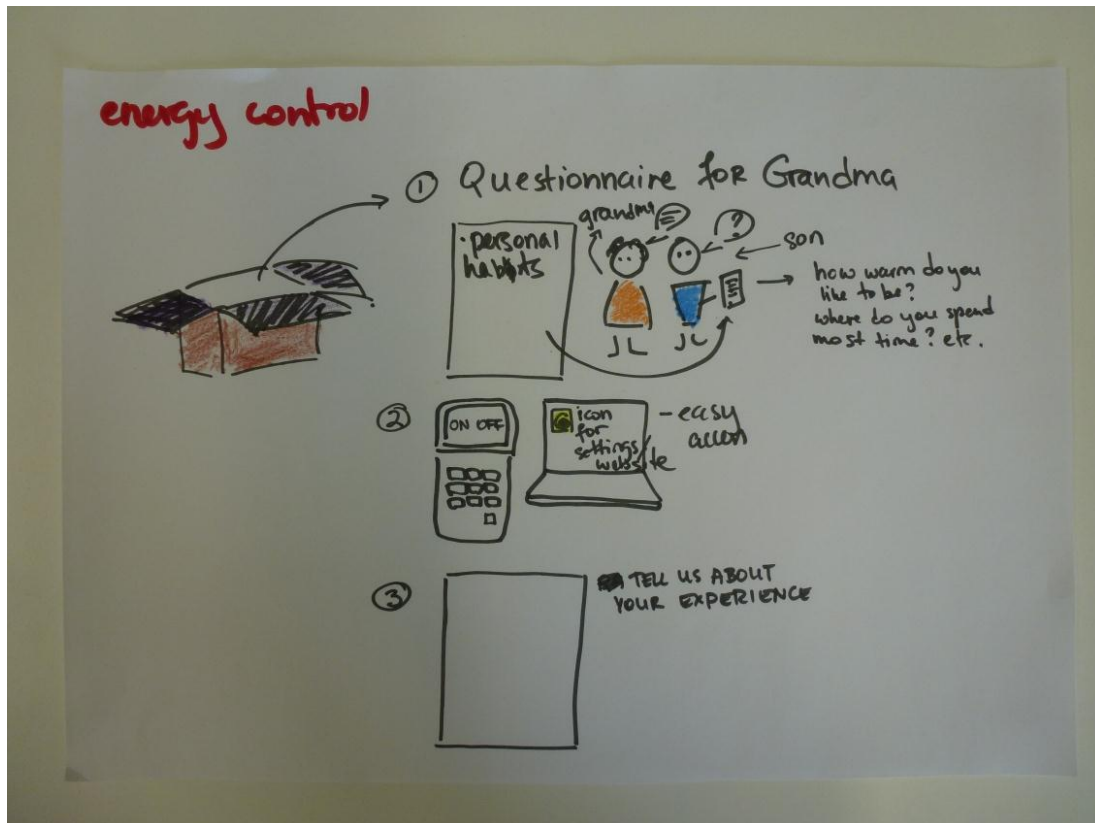 energy control
① Questionnaire for Grandma
• personal
habits
grandma
?
son
how warm do you
like to be?
where do you spend
most time? etc.
②
ON OFF
icon
for
settings
website
- easy
③
TELL US ABOUT
YOUR EXPERIENCE